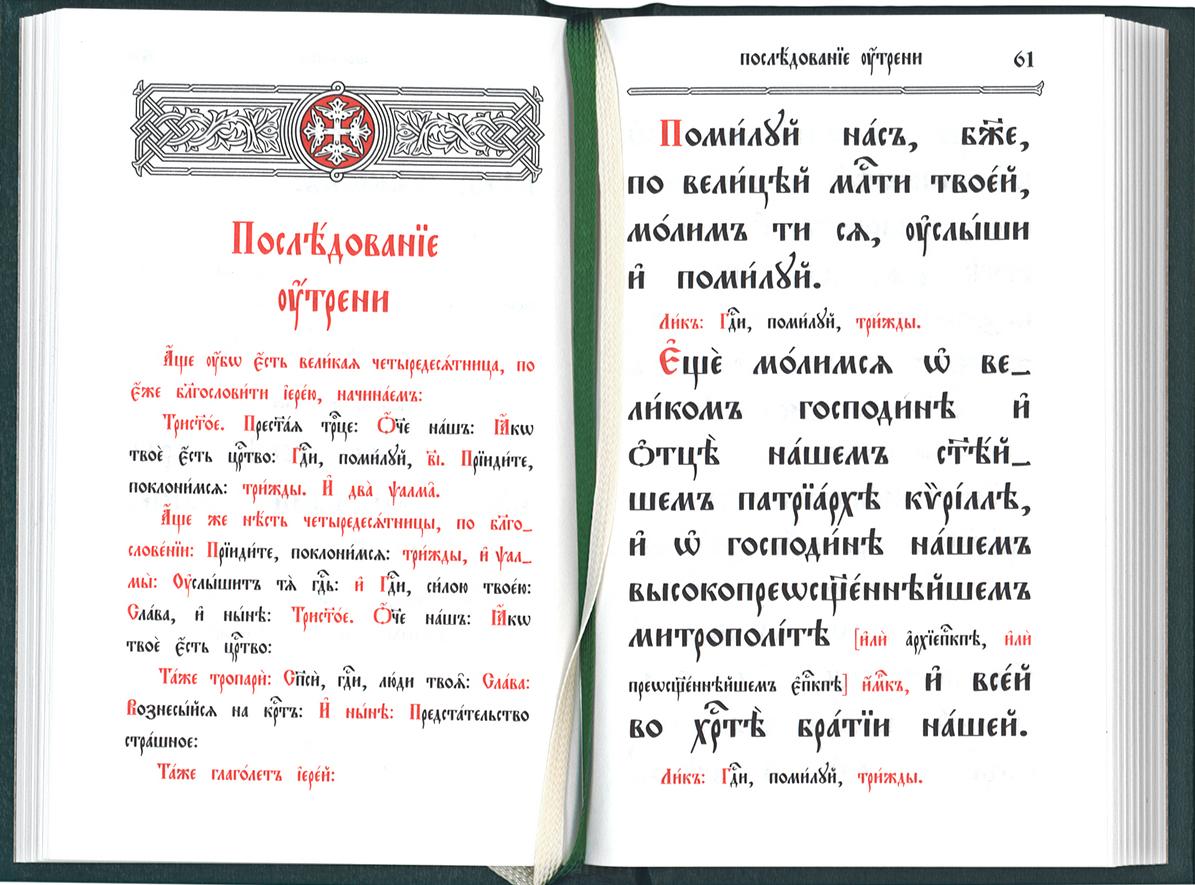 Послѣ́дованїе
ᲂу҆́трени
А҆́ще ᲂу҆̀бѡ є҆́сть вели́каѧ четыредесѧ́тница, по
є҆́же бл҃гослови́ти і҆ере́ю, начина́емъ:
Трист҃о́е. Прест҃а́ѧ трⷪ҇це: Ѻ҆́ч҃е на́шъ: Ꙗ҆́кѡ
твоѐ є҆́сть црⷭ҇тво: Гдⷭ҇и, поми́лꙋй, в҃і. Прїиди́те,
поклони́мсѧ: три́жды. И҆ два̀ ѱалма̑.
А҆́ще же нѣ́сть четыредесѧ́тницы, по бл҃го_
слове́нїи: Прїиди́те, поклони́мсѧ: три́жды, и҆ ѱал_
мы̀: Оу҆слы́шитъ тѧ̀ гдⷭ҇ь: и҆ Гдⷭ҇и, си́лою твое́ю:
Сла́ва, и҆ ны́нѣ: Трист҃о́е. Ѻ҆́ч҃е на́шъ: Ꙗ҆́кѡ
твоѐ є҆́сть црⷭ҇тво:
Та́же тропарѝ: Сп҃сѝ, гдⷭ҇и, лю́ди твоѧ̑: Сла́ва:
Вознесы́йсѧ на крⷭ҇тъ: И҆ ны́нѣ: Предста́тельство
стра́шное:
Та́же глаго́летъ і҆ере́й:
послѣ́дованїе ᲂу҆́трени 61
Поми́лꙋй на́съ, бж҃е,
по вели́цѣй млⷭ҇ти твое́й,
мо́лимъ ти сѧ, ᲂу҆слы́ши
и҆ поми́лꙋй.
Ли́къ: Гдⷭ҇и, поми́лꙋй, три́жды.
Є҆щѐ мо́лимсѧ ѡ҆ ве_
ли́комъ господи́нѣ и҆
ѻ҆тцѣ̀ на́шемъ ст҃ѣ́й_
шемъ патрїа́рхѣ кѷрі́ллѣ,
и҆ ѡ҆ господи́нѣ на́шемъ
высокопреѡсщ҃е́ннѣйшемъ
митрополі́тѣ [и҆лѝ а҆рхїепⷭ҇кпѣ, и҆лѝ
преѡсщ҃е́ннѣйшемъ є҆пⷭ҇кпѣ] и҆́мⷬ҇къ, и҆ все́й
во хрⷭ҇тѣ̀ бра́тїи на́шей.
Ли́къ: Гдⷭ҇и, поми́лꙋй, три́жды.